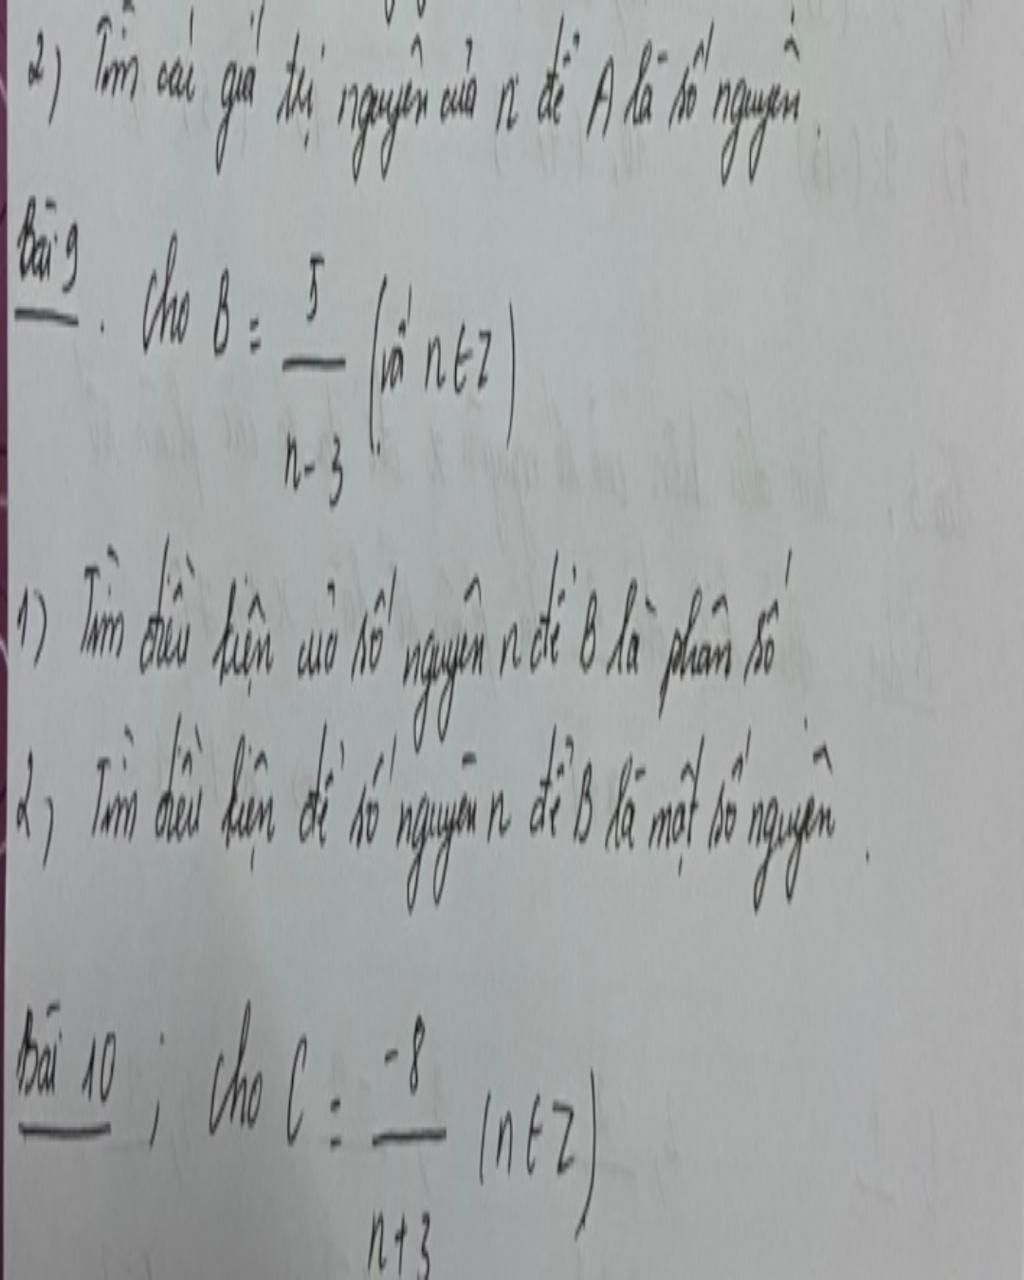 2) Tìm các giá trị nguyên của n để A là số nguyên.
Bài 9. Cho B = 5/(n-3) (và n∈Z)
1) Tìm điều kiện của số nguyên n để B là phân số
2) Tìm điều kiện để số nguyên n để B là một số nguyên.
Bài 10; Cho C = -8/(n+3) (n∈Z)